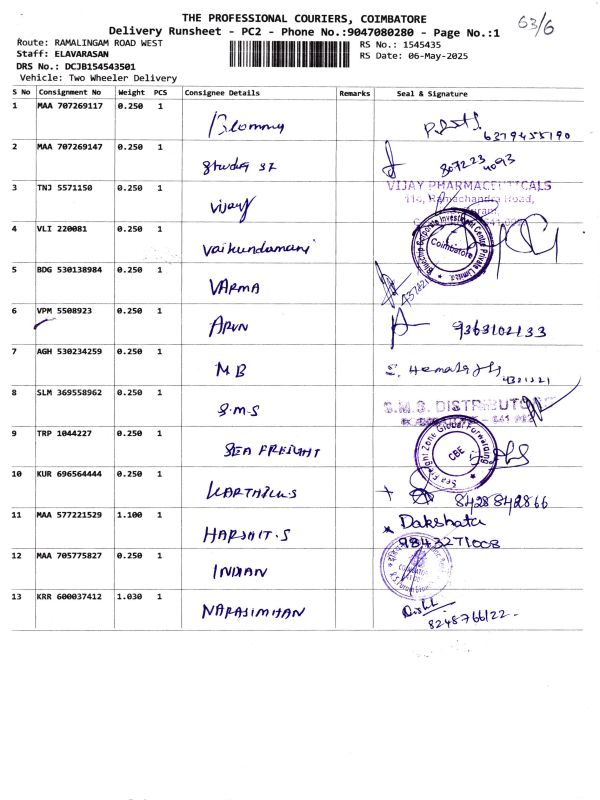 63/6
THE PROFESSIONAL COURIERS, COIMBATORE
Delivery Runsheet - PC2 - Phone No.:9047080280 - Page No.:1
Route: RAMALINGAM ROAD WEST
Staff: ELAVARASAN
DRS No.: DCJB154543501
Vehicle: Two Wheeler Delivery
RS No.: 1545435
RS Date: 06-May-2025
S No Consignment No Weight PCS Consignee Details Remarks Seal & Signature
1 MAA 707269117 0.250 1 Blommy 6379455790
2 MAA 707269147 0.250 1 Studio 37 80723 4093
3 TNJ 5571150 0.250 1 Vijay VIJAY PHARMACEUTICALS
Ramachandra Road,
4 VLI 220081 0.250 1 Vaikundamani Bluechip Corporate Investment Centre Private Limited. Coimbatore
5 BDG 530138984 0.250 1 VARMA
6 VPM 5508923 0.250 1 ARUN 9363102133
7 AGH 530234259 0.250 1 MB
8 SLM 369558962 0.250 1 S.M.S S.M.S. DISTRIBUTORS
9 TRP 1044227 0.250 1 SEA FREIGHT Sea Freight Zone Global Forwarding CBE
10 KUR 696564444 0.250 1 KARTHIK.S 8428842866
11 MAA 577221529 1.100 1 HARSHIT.S Dakshata
9843271008
12 MAA 705775827 0.250 1 INDIAN
13 KRR 600037412 1.030 1 NARASIMHAN
8248766122